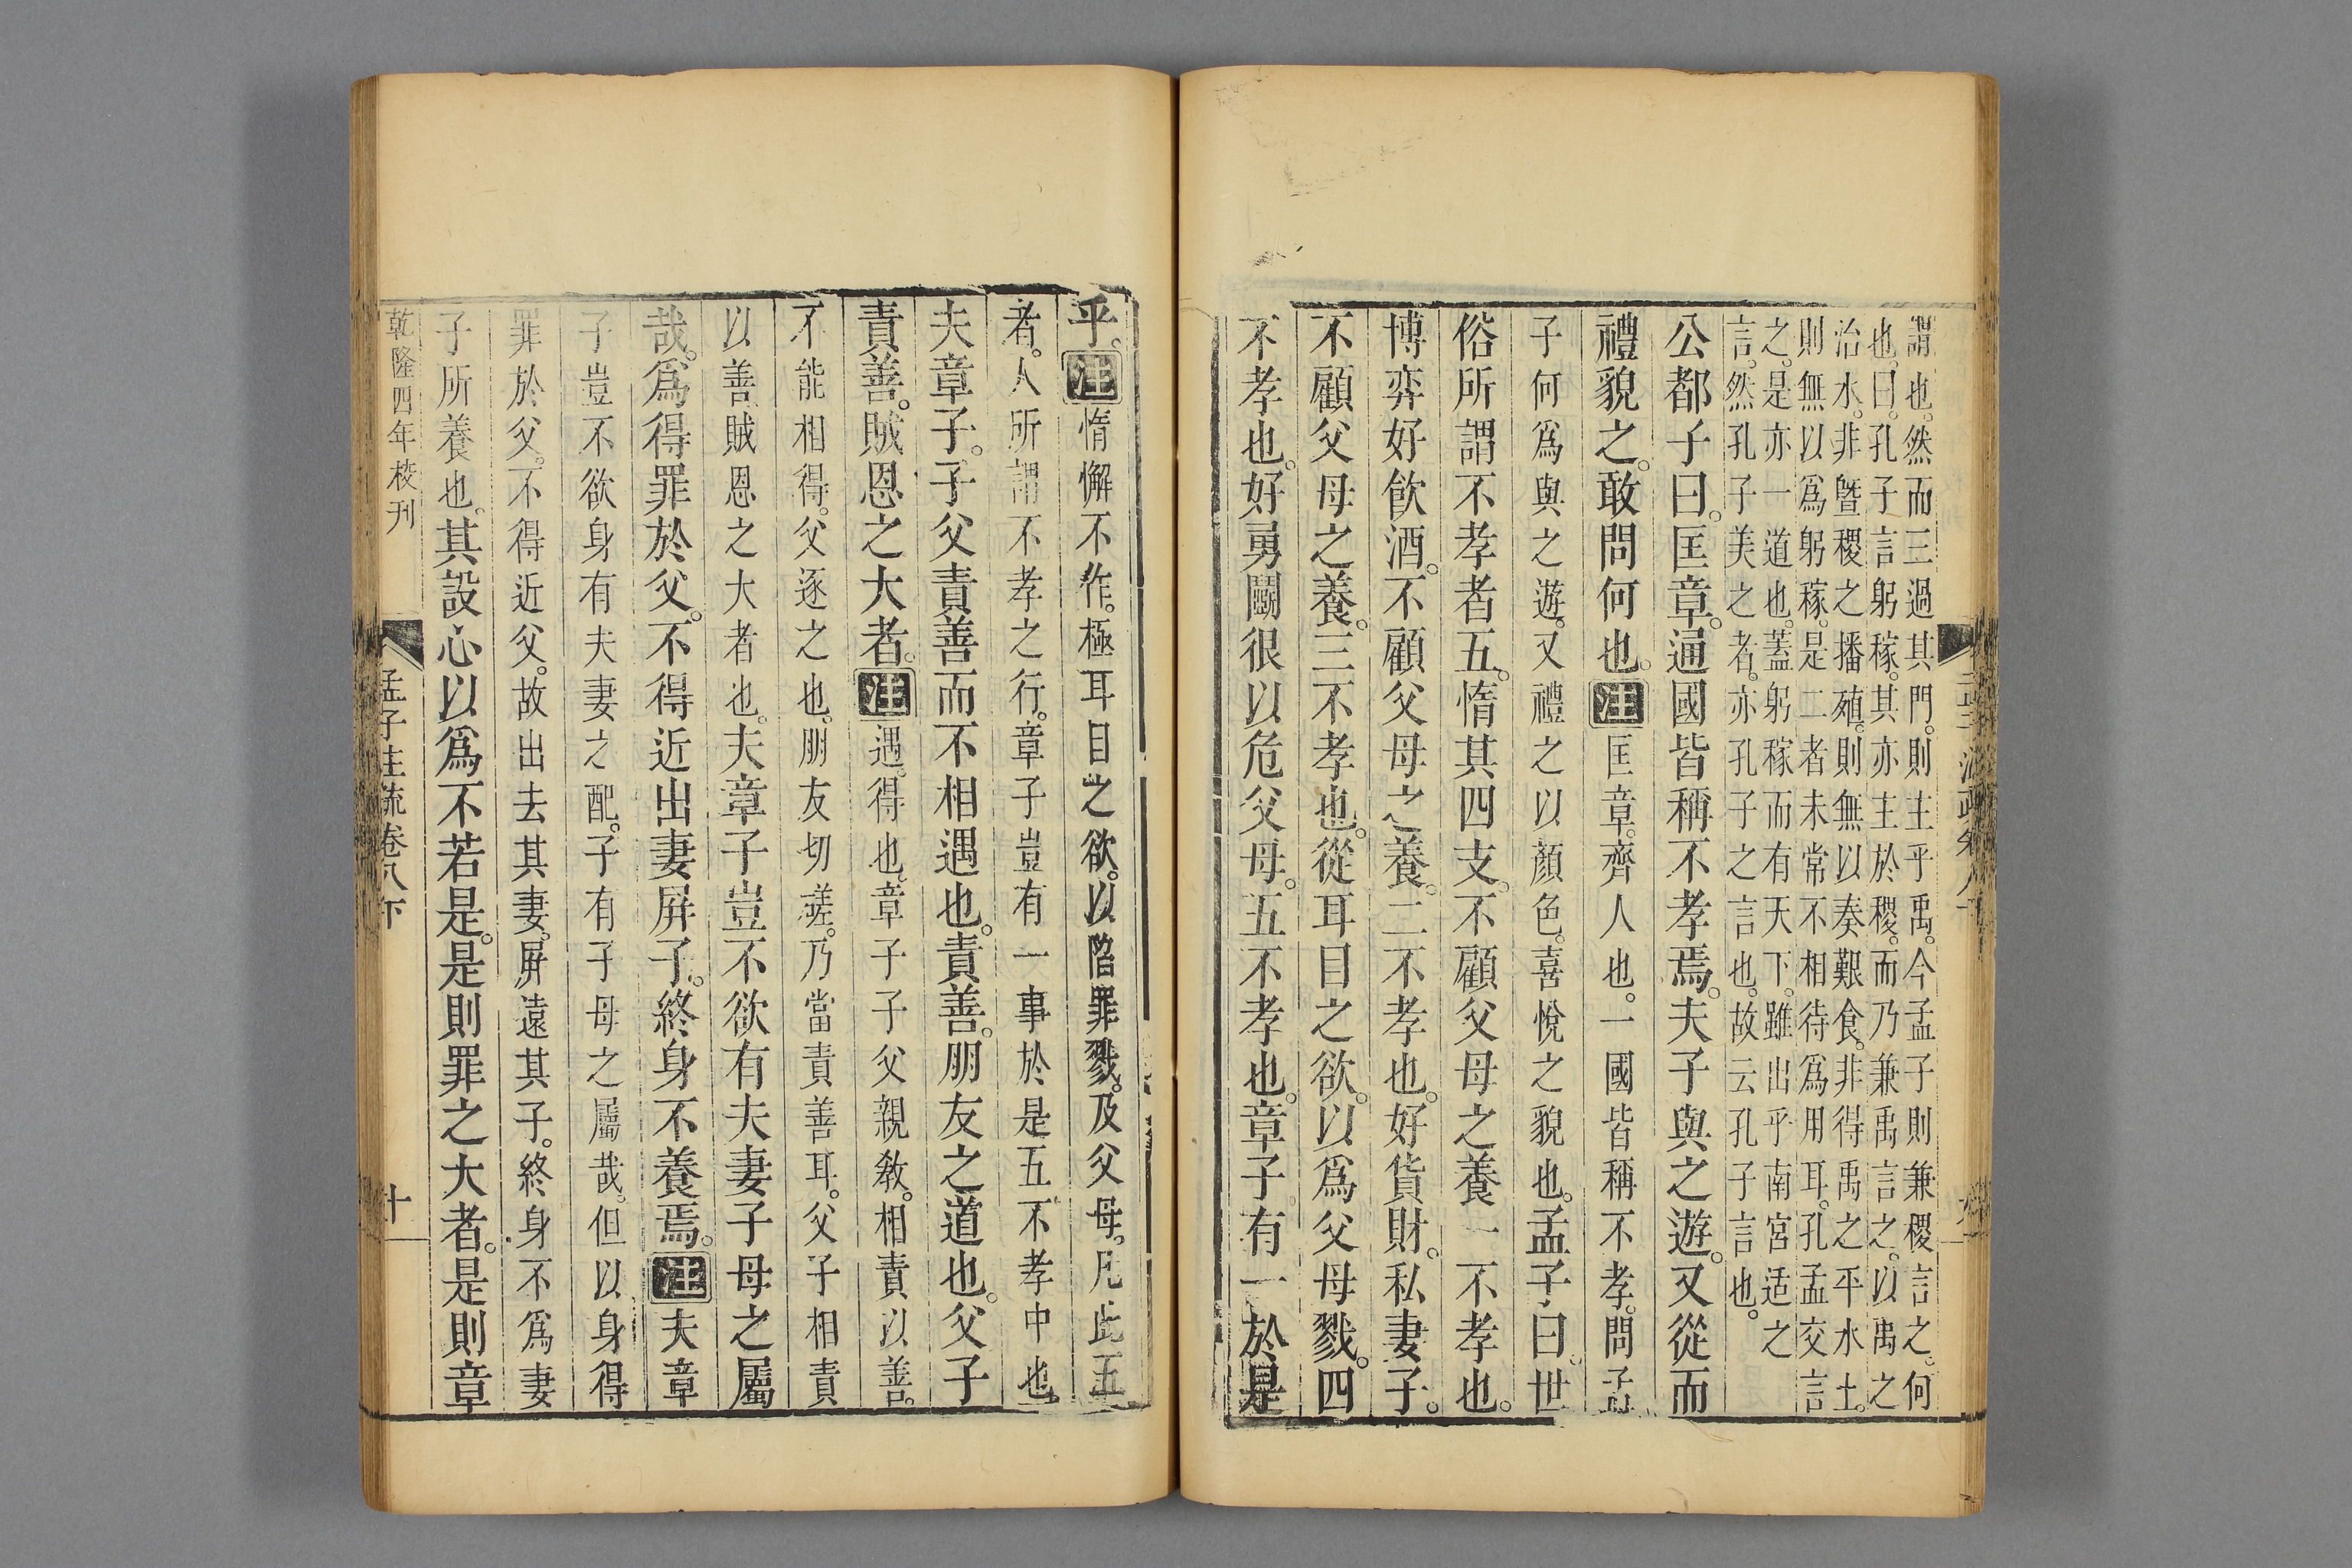 謂也。然而三過其門。則主乎禹。今孟子則兼稷言之。何
也。曰。孔子言躬稼。其亦主於稷。而乃兼禹言之。以禹之
治水。非曁稷之播殖。則無以奏艱食。非得禹之平水土。
則無以爲躬稼。是二者未常不相待爲用耳。孔孟交言
之。是亦一道也。蓋躬稼而有天下。雖出乎南宮适之
言。然孔子美之者。亦孔子之言也。故云孔子言也。
公都子曰。匡章。通國皆稱不孝焉。夫子與之遊。又從而
禮貌之。敢問何也。注匡章。齊人也。一國皆稱不孝。問孟
子何爲與之遊。又禮之以顏色。喜悅之貌也。孟子曰。世
俗所謂不孝者五。惰其四支。不顧父母之養。一不孝也。
博弈好飮酒。不顧父母之養。二不孝也。好貨財。私妻子。
不顧父母之養。三不孝也。從耳目之欲。以爲父母戮。四
不孝也。好勇鬭很以危父母。五不孝也。章子有一於是
乎。注惰懈不作。極耳目之欲。以陷罪戮。及父母。凡此五
者。人所謂不孝之行。章子豈有一事於是五不孝中也。
夫章子。子父責善而不相遇也。責善。朋友之道也。父子
責善。賊恩之大者。注遇。得也。章子子父親敎。相責以善。
不能相得。父逐之也。朋友切磋。乃當責善耳。父子相責
以善賊恩之大者也。夫章子豈不欲有夫妻子母之屬
哉。爲得罪於父。不得近出妻屛子。終身不養焉。注夫章
子豈不欲身有夫妻之配。子有子母之屬哉。但以身得
罪於父。不得近父。故出去其妻。屛遠其子。終身不爲妻
子所養也。其設心以爲不若是。是則罪之大者。是則章
乾隆四年校刊
孟子注疏卷八下
十